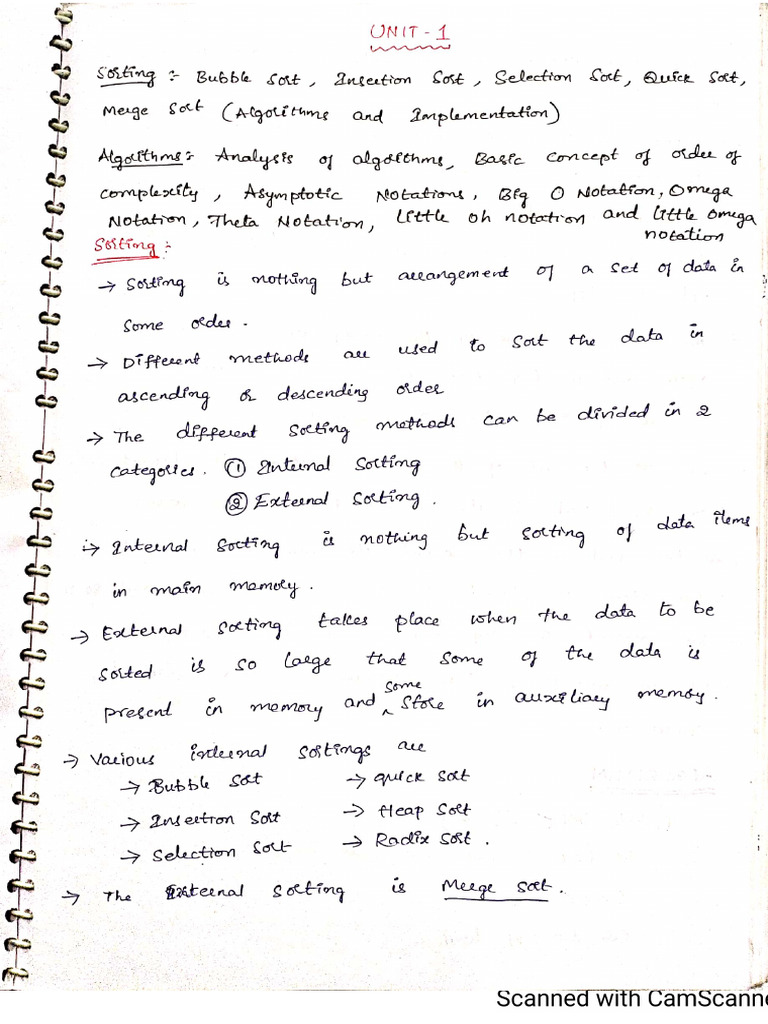 UNIT - 1
Sorting :- Bubble Sort, Insertion Sort, Selection Sort, Quick Sort,
Merge Sort (Algorithms and Implementation)
Algorithms :- Analysis of algorithms, Basic concept of order of
complexity, Asymptotic Notations, Big O Notation, Omega
Notation, Theta Notation, Little oh notation and little omega
notation
Sorting :-
→ Sorting is nothing but arrangement of a set of data in
some order.
→ Different methods are used to sort the data in
ascending or descending order
→ The different sorting methods can be divided in 2
categories. ① Internal Sorting
② External Sorting.
→ Internal Sorting is nothing but sorting of data items
in main memory.
→ External sorting takes place when the data to be
sorted is so large that some of the data is
present in memory and some store in auxiliary memory.
→ Various internal sortings are
→ Bubble sort → quick sort
→ Insertion Sort → Heap Sort
→ Selection Sort → Radix Sort.
→ The External sorting is Merge sort.
Scanned with CamScanne